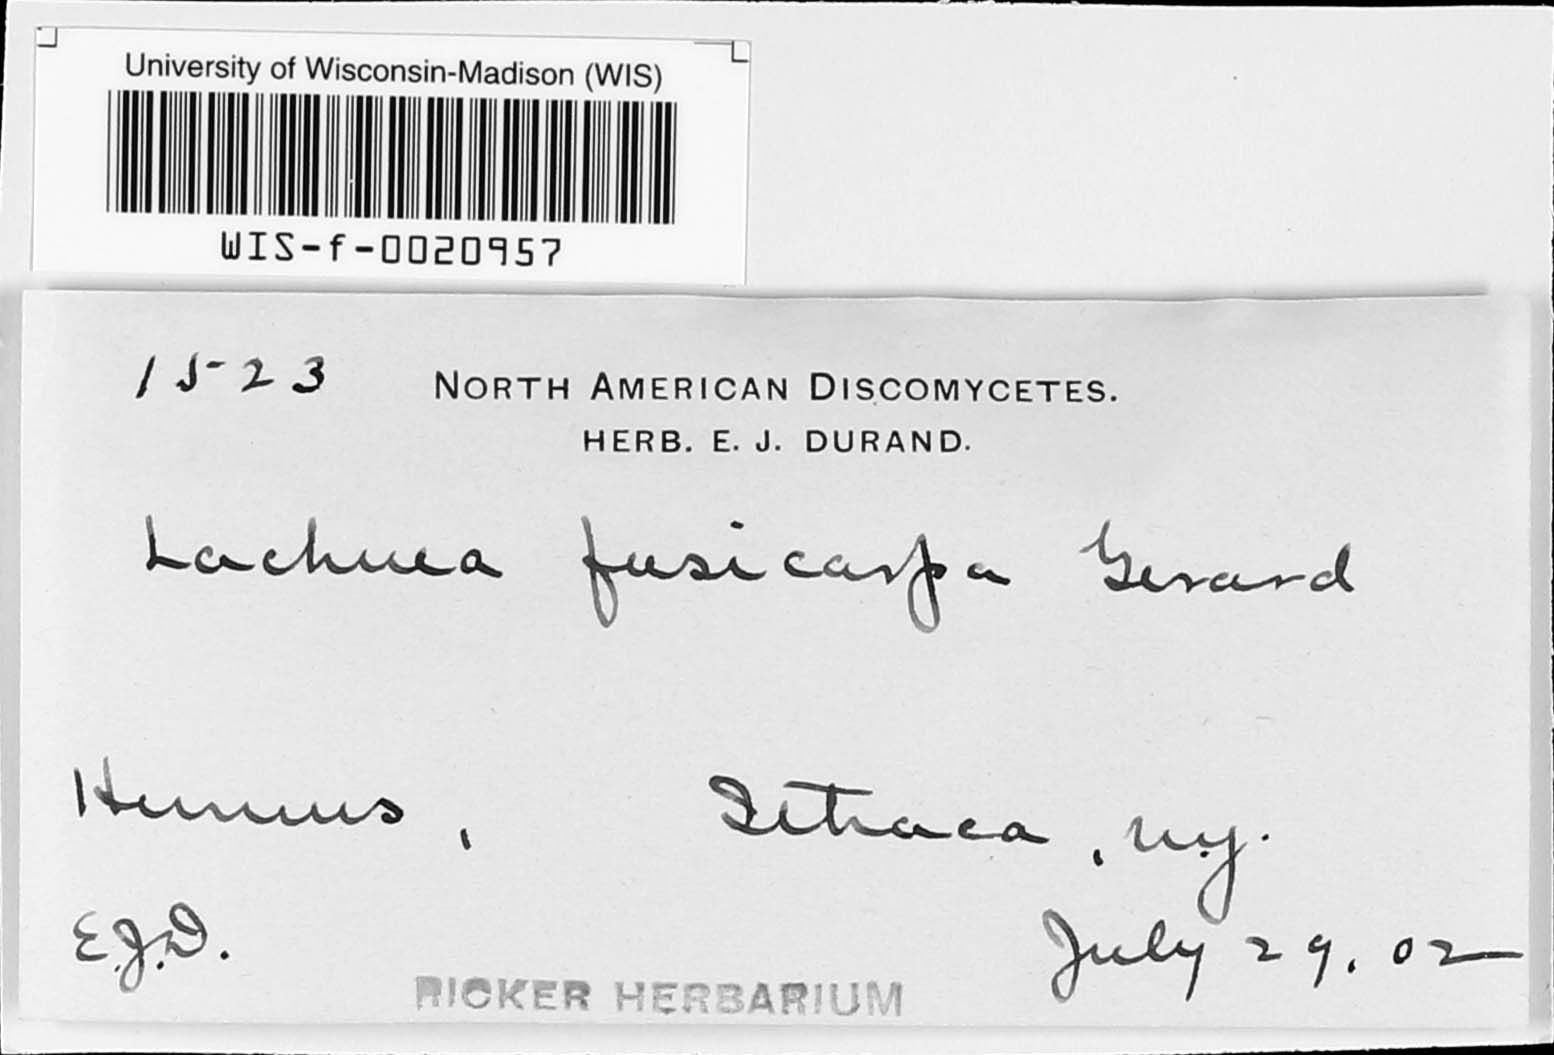 University of Wisconsin-Madison (WIS)
WIS-f-0020957
1523 NORTH AMERICAN DISCOMYCETES.
HERB. E. J. DURAND.
Lachnea fusicarpa Gerard
Humus, Ithaca, N.Y.
E.J.D. July 29, 02
RICKER HERBARIUM